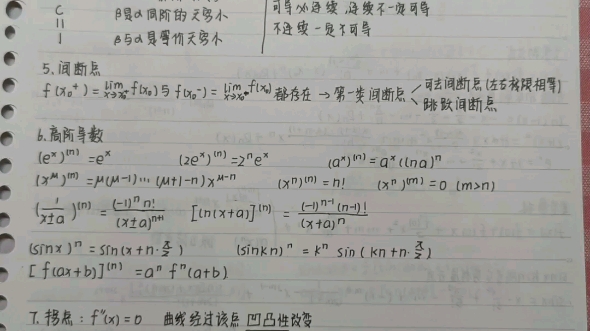 C β是α同阶的无穷小 可导必连续,连续不一定可导
|| β与α是等价无穷小 不连续一定不可导
1
5.间断点
f(x₀⁺)=lim x→x₀⁺ f(x₀)与f(x₀⁻)=lim x→x₀⁻ f(x₀)都存在→第一类间断点
可去间断点(左右极限相等)
跳跃间断点
6.高阶导数
(eˣ)⁽ⁿ⁾=eˣ (2eˣ)⁽ⁿ⁾=2ⁿeˣ (aˣ)⁽ⁿ⁾=aˣ(lna)ⁿ
(x^μ)⁽ⁿ⁾=μ(μ-1)…(μ+1-n)x^(μ-n) (xⁿ)⁽ⁿ⁾=n! (xⁿ)⁽ᵐ⁾=0 (m>n)
(1/(x±a))⁽ⁿ⁾=(-1)ⁿn!/(x±a)ⁿ⁺¹ [ln(x+a)]⁽ⁿ⁾=(-1)ⁿ⁻¹(n-1)!/(x+a)ⁿ
(sinx)ⁿ=sin(x+n·π/2) (sinkn)ⁿ=kⁿ sin(kn+n·π/2)
[f(ax+b)]⁽ⁿ⁾=aⁿfⁿ(a+b)
7.拐点:f''(x)=0 曲线经过该点 凹凸性改变